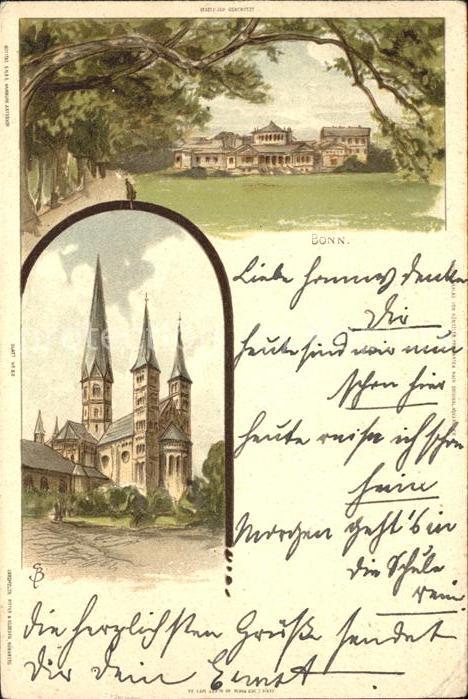 BONN.
Liebe Hannes denke
Dir
heute sind wir nun
schon hier
heute reise ich schon
heim
Morgen geht's in
die Schule
rein
die herzlichsten Grüße sendet
Dir dein Ernst